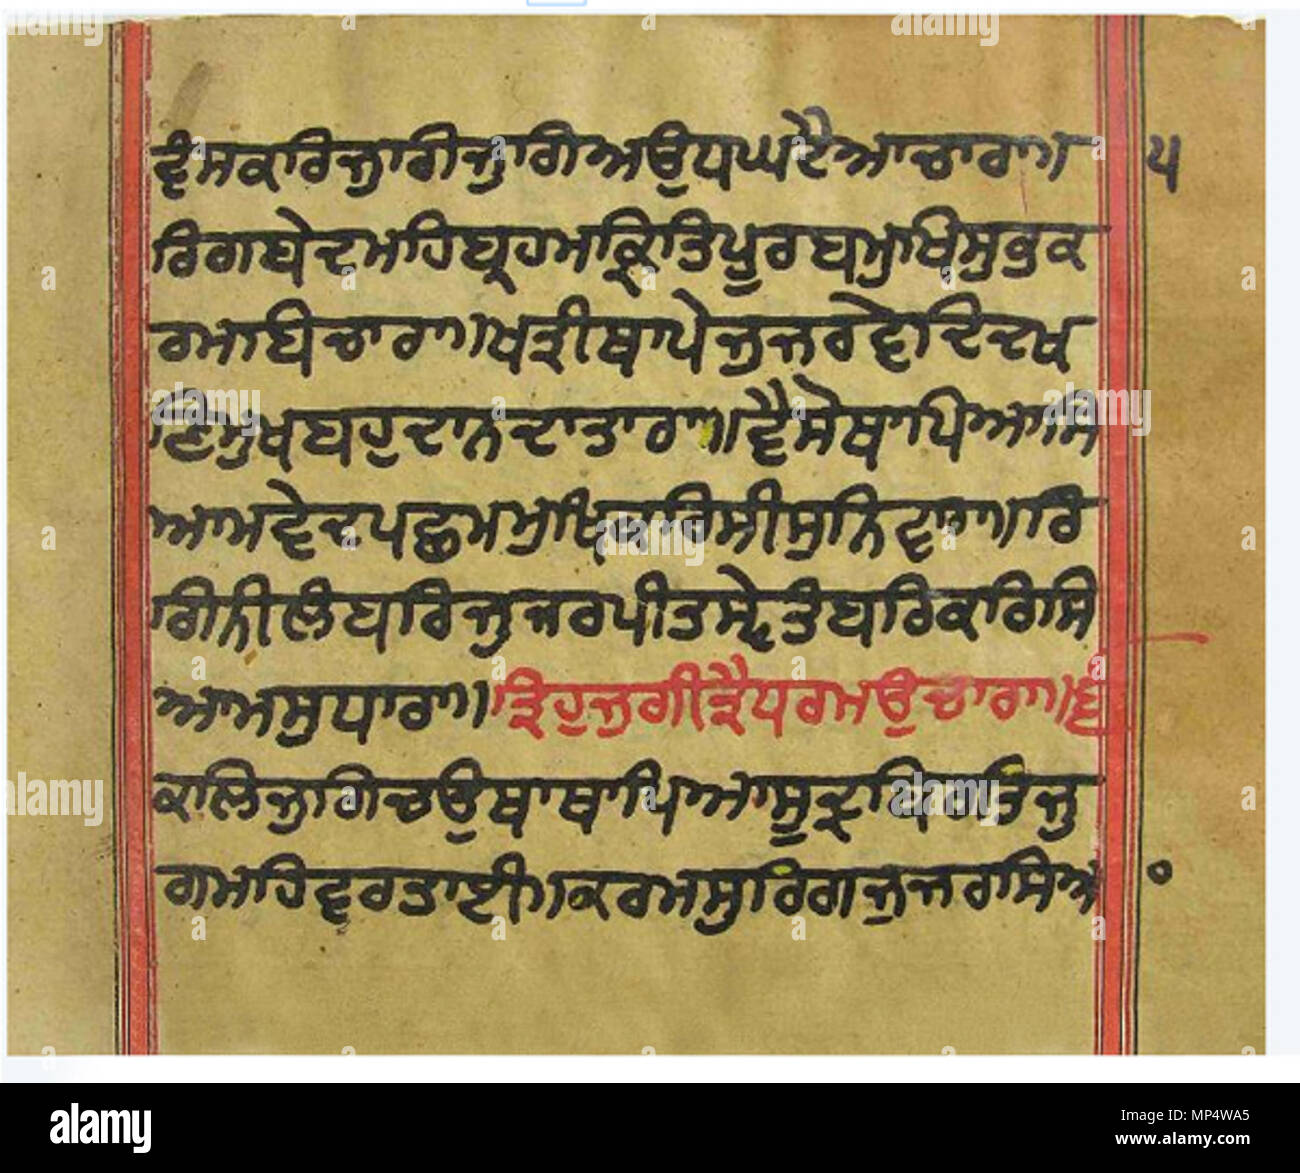 ਕਰਿ ਜੁਗਿ ਜੁਗਿ ਅਉਧ ਘਟੈ ਆਚਾਰਾ॥ ੫
ਰਿਗ ਬੇਦ ਮਹਿ ਬ੍ਰਹਮ ਕ੍ਰਿਤਿ ਪੂਰਬ ਮੁਖਿ ਸੁਭ ਕ
ਰਮ ਬਿਚਾਰਾ॥ਖਤ੍ਰੀ ਥਾਪੇ ਜੁਜਰ ਵੇਦਿ ਦਖ
ਣਿ ਮੁਖ ਬਹੁ ਦਾਨ ਦਾਤਾਰਾ॥ਵੈਸੋ ਥਾਪਿਆ ਸਿ
ਆਮ ਵੇਦ ਪਛਮ ਮੁਖਿ ਕਰਿ ਸੀਸੁ ਨਿਵਾਰਾ॥ਰਿ
ਗਿ ਨੀਲੰਬਰਿ ਜੁਜਰ ਪੀਤ ਸ੍ਵੇਤੰਬਰਿ ਕਰਿ ਸਿ
ਆਮ ਸੁਧਾਰਾ॥ਤ੍ਰਿਹੁ ਜੁਗੀ ਤ੍ਰੈ ਧਰਮ ਉਚਾਰਾ॥੬
ਕਲਿਜੁਗਿ ਚਉਥਾ ਥਾਪਿਆ ਸੂਦ੍ਰ ਬਿਰਤਿ ਜੁ
ਗ ਮਹਿ ਵਰਤਾਈ॥ਕਰਮ ਸੁ ਰਿਗ ਜੁਜਰ ਸਿਅ ੦
alamy
Image ID: MP4WA5
www.alamy.com